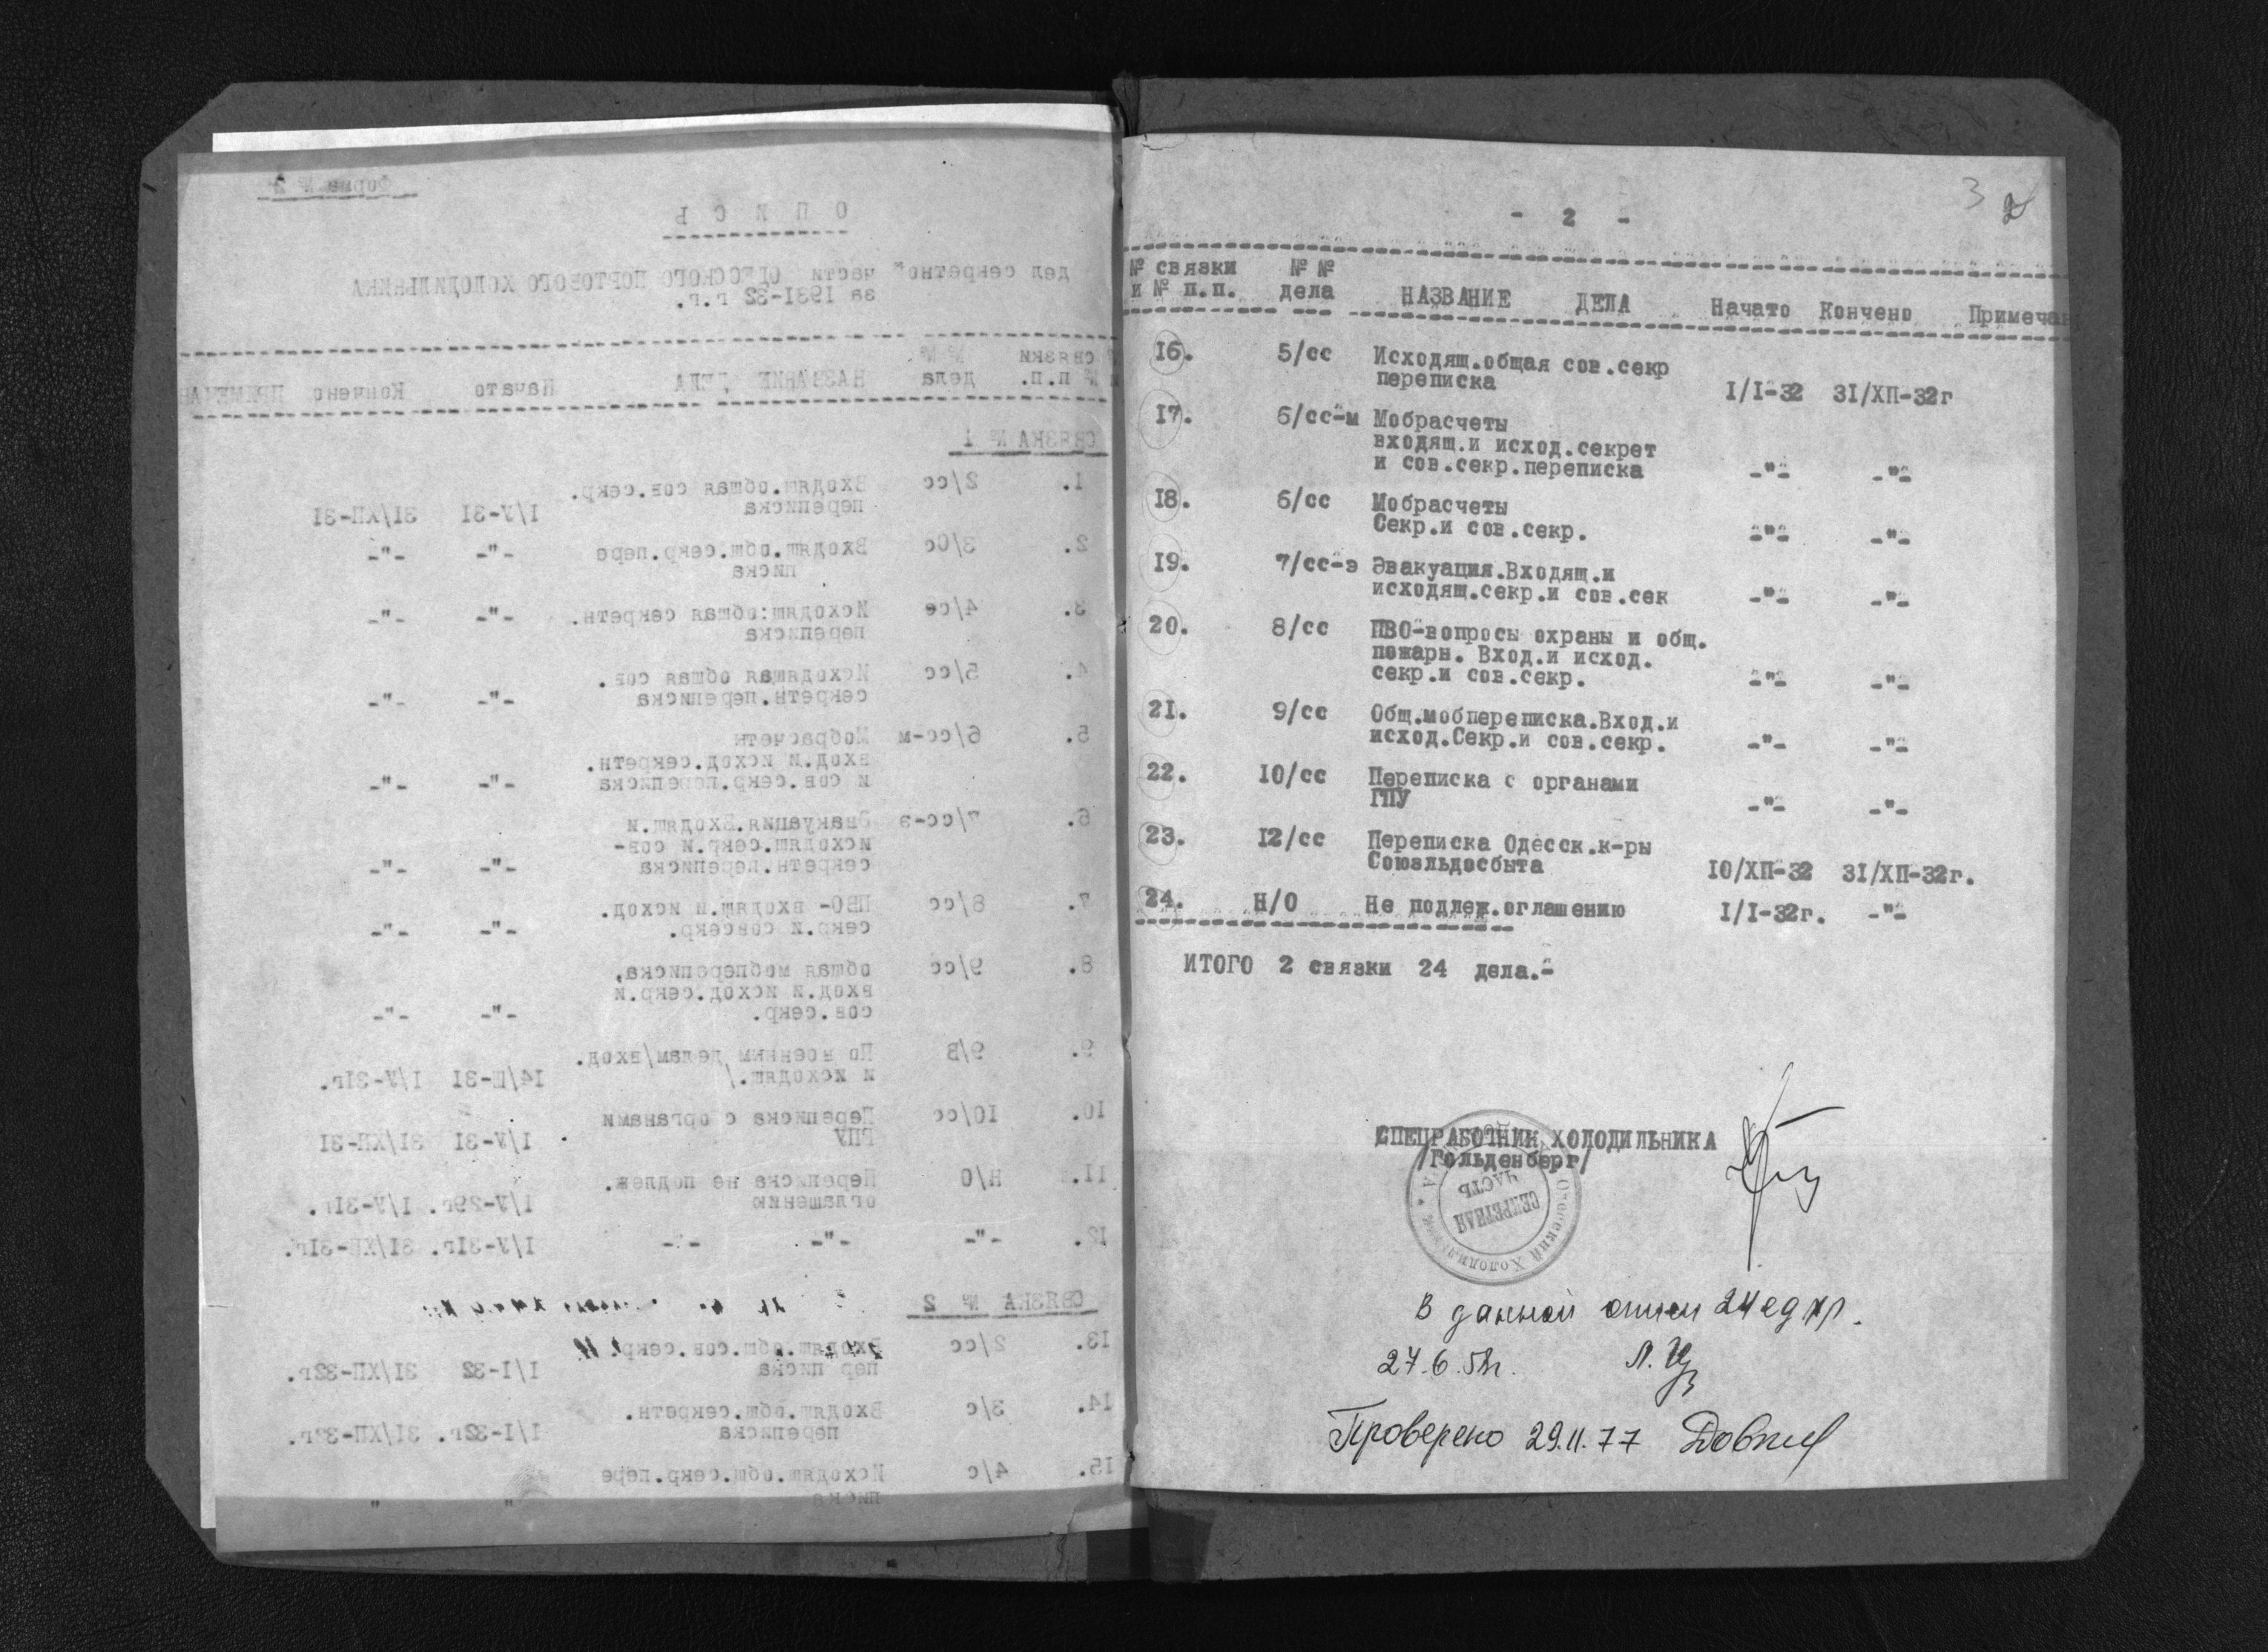 Форма № 2
О П И С Ь
дел секретной части ОДЕССКОГО ПОРТОВОГО ХОЛОДИЛЬНИКА
за 1931-32 г.г.
связки № №
№ п.п. дела НАЗВАНИЕ ДЕЛА Начато Кончено ПРИМЕЧАН
СВЯЗКА № 1
1. 2/сс Входящ.общая сов.секр.
переписка I/У-31 31/ХП-31
2. 3/Сс Входящ.общ.секр.пере
писка -"- -"-
3. 4/се Исходящ:общая секретн.
переписка -"- -"-
4. 5/сс Исходящая общая сов.
секретн.переписка -"- -"-
5. 6/сс-м Мобрасчеты
вход.и исход.секретн.
и сов.секр.переписка -"- -"-
6. 7/сс-э Эвакуация.Входящ.и
исходящ.секр.и сов-
секретн.переписка -"- -"-
7. 8/сс ПВО- входящ.и исход.
секр.и совсекр. -"- -"-
8. 9/сс общая мобпереписка,
вход.и исход.секр.и
сов.секр. -"- -"-
9. 9/В По военным делам/вход.
и исходящ./ 14/Ш-31 I/У-31г.
10. 10/сс Переписка с органами
ГПУ I/У-31 31/ХП-31
11. Н/О Переписка не подлеж.
оглашению I/У-29г. I/У-31г.
12. -"- -"- -"- I/У-31г. 31/ХП-31г.
СВЯЗКА № 2
13. 2/сс Входящ.общ.сов.секр.
пер писка I/I-32 31/ХП-32г.
14. 3/с Входящ.общ.секретн.
переписка I/I-32г. 31/ХП-32г.
15. 4/с Исходящ.общ.секр.пере
писка " "
3 2
- 2 -
№ связки № №
и № п.п. дела НАЗВАНИЕ ДЕЛА Начато Кончено Примечан
16. 5/сс Исходящ.общая сов.секр
переписка I/I-32 31/ХП-32г
17. 6/сс-м Мобрасчеты
входящ.и исход.секрет
и сов.секр.переписка -"- -"-
18. 6/сс Мобрасчеты
Секр.и сов.секр. -"- -"-
19. 7/сс-э Эвакуация.Входящ.и
исходящ.секр.и сов.сек -"- -"-
20. 8/сс ПВО-вопросы охраны и общ.
пожарн. Вход.и исход.
секр.и сов.секр. -"- -"-
21. 9/сс Общ.мобпереписка.Вход.и
исход.Секр.и сов.секр. -"- -"-
22. 10/сс Переписка с органами
ГПУ -"- -"-
23. 12/сс Переписка Одесск.к-ры
Союзльдосбыта 10/ХП-32 31/ХП-32г.
24. Н/О Не подлеж.оглашению I/I-32г. -"-
ИТОГО 2 связки 24 дела.-
СПЕЦРАБОТНИК ХОЛОДИЛЬНИКА
/Гольденберг/
СЕКРЕТНАЯ
ЧАСТЬ
В данной описи 24 ед хр.
27.6.58г.
Проверено 29.11.77